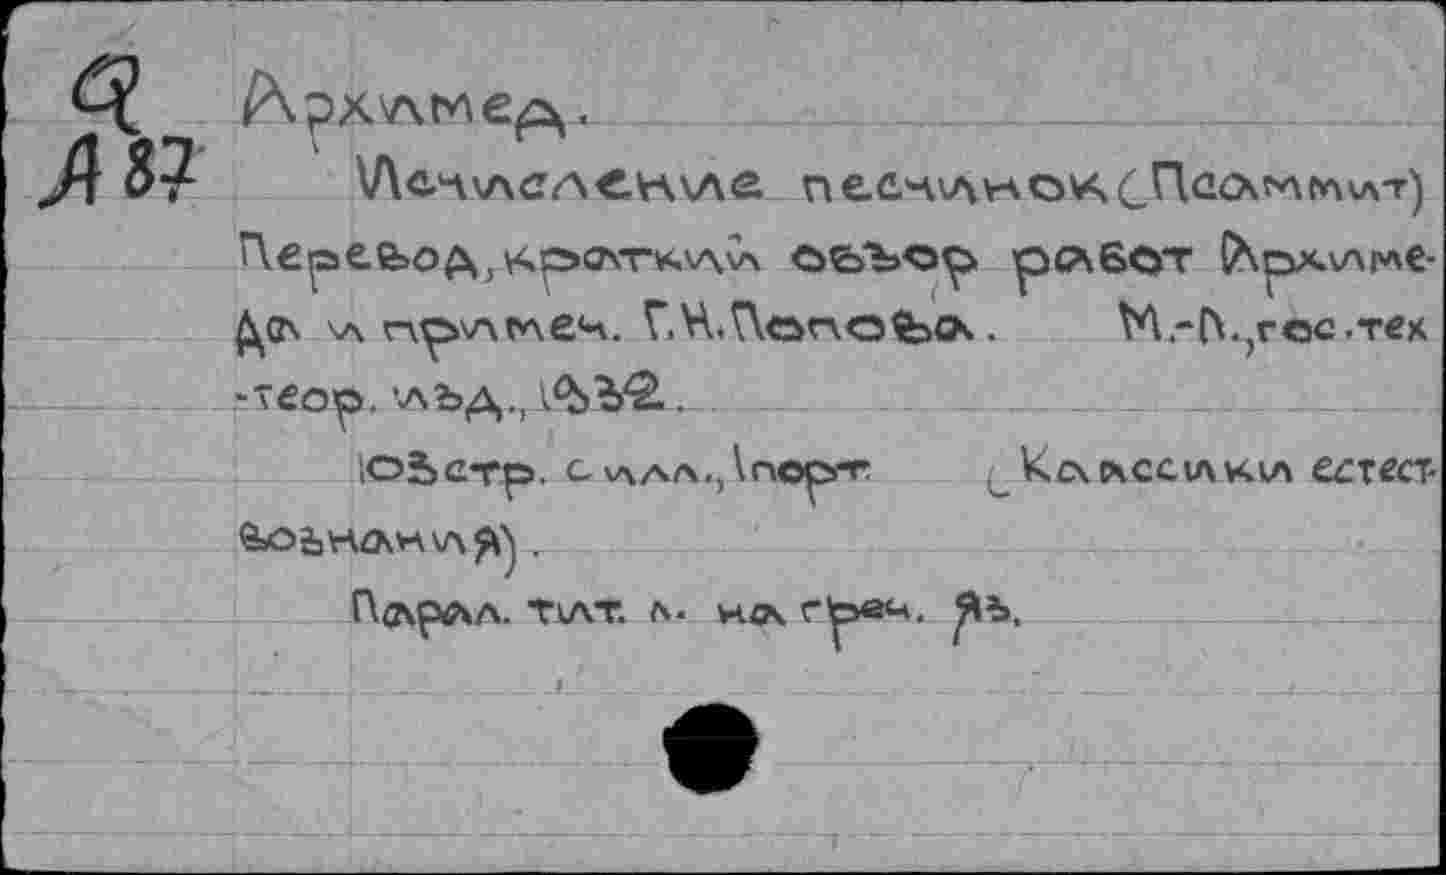 Я Архимед.
А87 Исчисление песчинок (Псаммит)
Перевод, краткий обзор работ Архиме-
да и примеч. Г.Н. Попова. М.-Л., гос. тех
-теор. изд., 1932.
103 стр. с илл., 1 порт. (Классики естест-
вознания).
Парал. тит. л. на греч. яз.